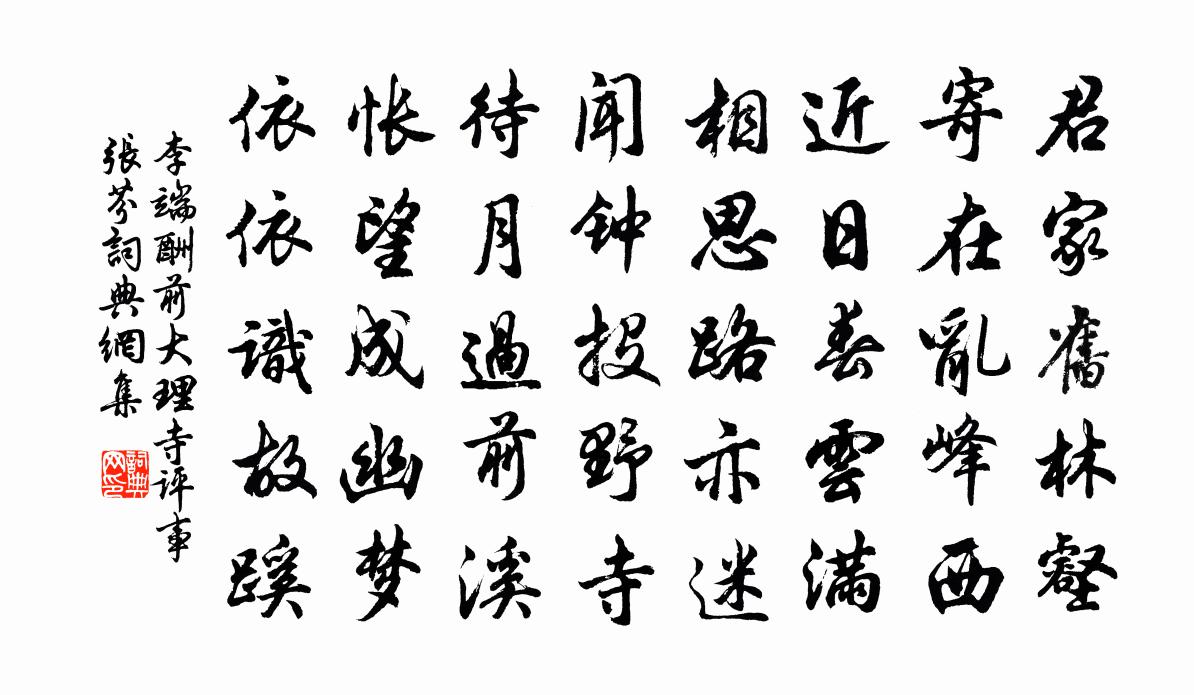 君家舊林壑
寄在亂峰西
近日春雲满
相思路亦迷
闻钟投野寺
待月過前溪
怅望成幽梦
依依識故蹊
李端酬前大理寺评事
張芬詞典網集
詞典网印